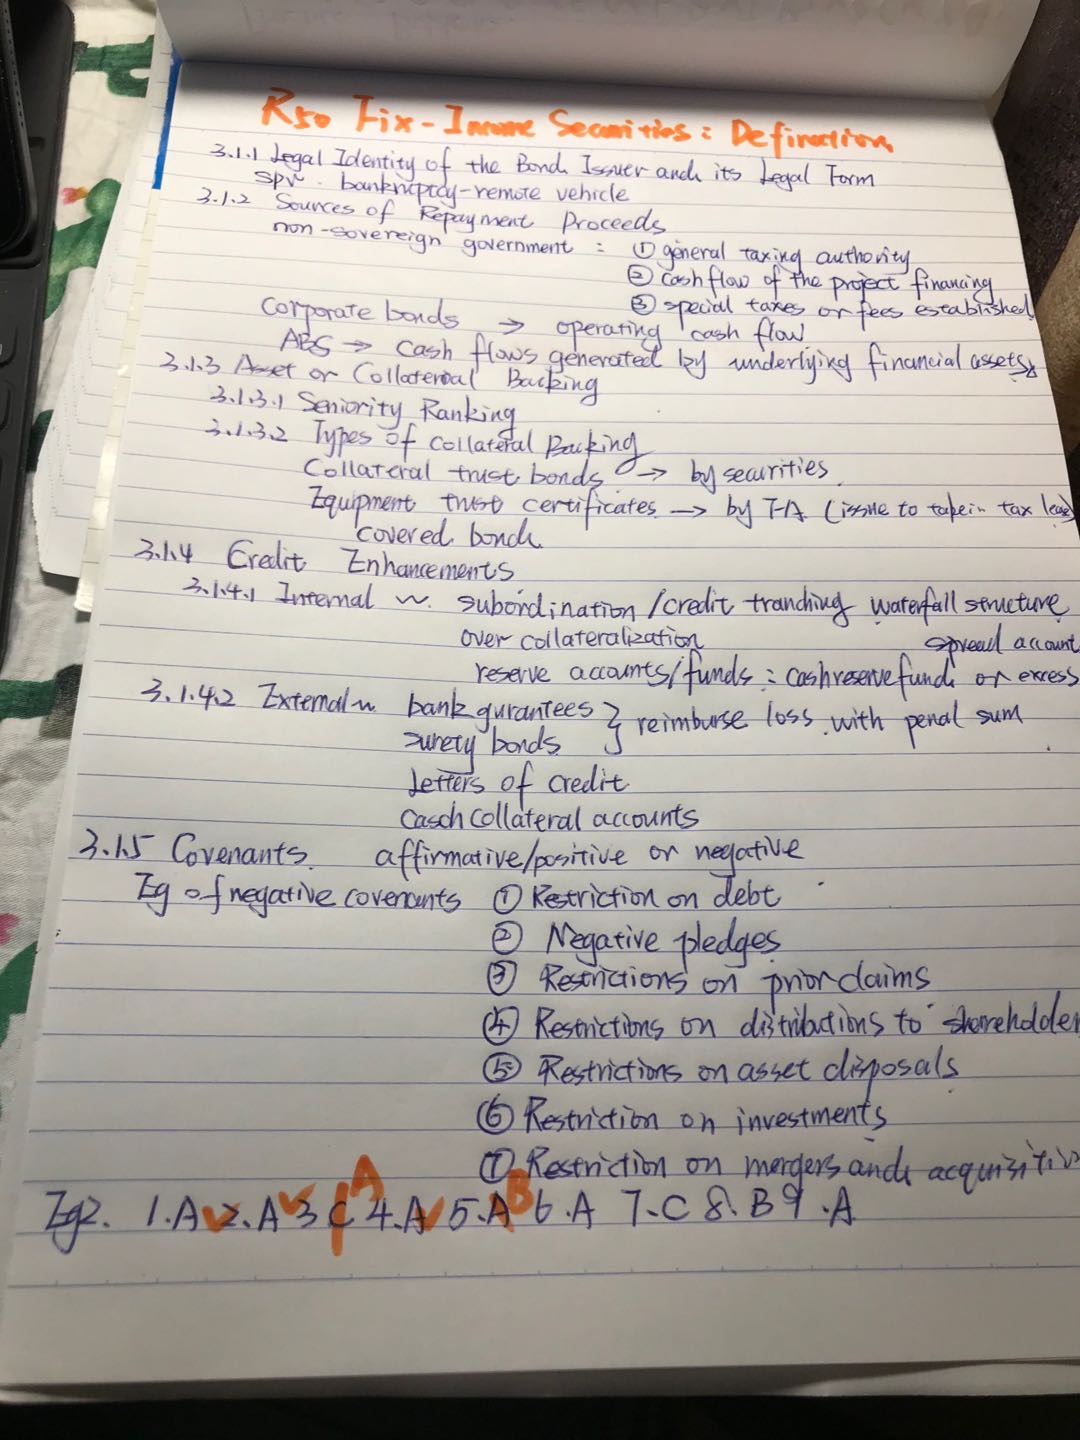 R50 Fix-Income Securities: Defination
3.1.1 Legal Identity of the Bond Issuer and its Legal Form
SPV. bankruptcy-remote vehicle
3.1.2 Sources of Repayment Proceeds
non-sovereign government : ① general taxing authority
② cash flow of the project financing
③ special taxes or fees established
Corporate bonds → operating cash flow
ABS → cash flows generated by underlying financial assets
3.1.3 Asset or Collateral Backing
3.1.3.1 Seniority Ranking
3.1.3.2 Types of Collateral Backing
Collateral trust bonds → by securities.
Equipment trust certificates → by FA (issue to take in tax
covered bond
3.1.4 Credit Enhancements
3.1.4.1 Internal ~. subordination/credit tranching waterfall structure
over collateralization spread account
reserve accounts/funds : cash reserve fund or excess
3.1.4.2 External ~. bank gurantees } reimburse loss with penal sum
surety bonds
Letters of credit
Casch collateral accounts
3.1.5 Covenants. affirmative/positive or negative
Eg of negative covenants ① Restriction on debt
② Negative pledges
③ Restrictions on prior claims
④ Restrictions on distributions to shareholder
⑤ Restrictions on asset disposals
⑥ Restriction on investments
⑦ Restriction on mergers and acquisiti
Eg2. 1.A ✓ 2.A ✓ 3 C A 4.A ✓ 5.A B 6.A 7.C 8.B 9.A